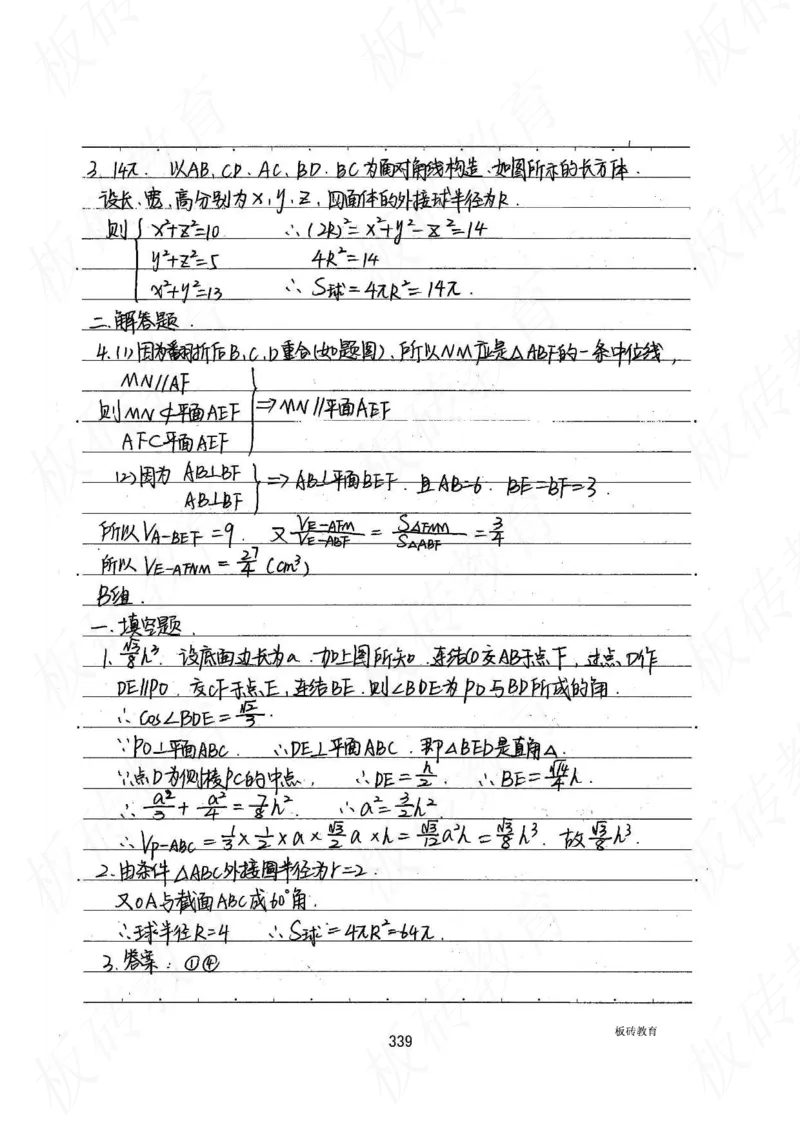 3. 14π. 以AB、CD、AC、BD、BC为面对角线构造、如图所示的长方体.
设长、宽、高分别为x, y, z, 四面体的外接球半径为R.
则 { x²+z²=10 ∴ (2R)²=x²+y²-z²=14
y²+z²=5 4R²=14
x²+y²=13 ∴ S球=4πR²=14π.
二.解答题.
4.(1)因为翻折后B、C、D重合(如题图)、所以NM应是△ABF的一条中位线,
MN//AF
则MN⊄平面AEF } ⇒ MN//平面AEF
AF⊂平面AEF
(2)因为 AB⊥BF } ⇒ AB⊥平面BEF. 且AB=6. BE=BF=3.
AB⊥BF
所以 V_{A-BEF}=9. 又 V_{E-AFM}/V_{E-ABF} = S_{△FNM}/S_{△ABF} = 3/4
所以 V_{E-AFNM} = 27/4 (cm³)
B组.
一.填空题.
1. √3/8 h³. 设底面边长为a. 如上图所知. 连结CD交AB于点F, 过点D作
DE//PO. 交CF于点E, 连结BE. 则∠BDE为PO与BD所成的角.
∴ cos∠BDE = √2/3.
∵ PO⊥平面ABC. ∴ DE⊥平面ABC. 即△BED是直角△.
∵ 点D为侧棱PC的中点, ∴ DE = h/2. ∴ BE = √14/4 h.
∴ a²/3 + a²/4 = 7/8 h². ∴ a² = 3/2 h²
∴ V_{P-ABC} = 1/3 × 1/2 × a × √3/2 a × h = √3/12 a²h = √3/8 h³. 故 √3/8 h³.
2. 由条件△ABC外接圆半径为r=2.
又OA与截面ABC成60°角.
∴ 球半径R=4 ∴ S球=4πR²=64π.
3. 答案: ①④
板砖教育
339